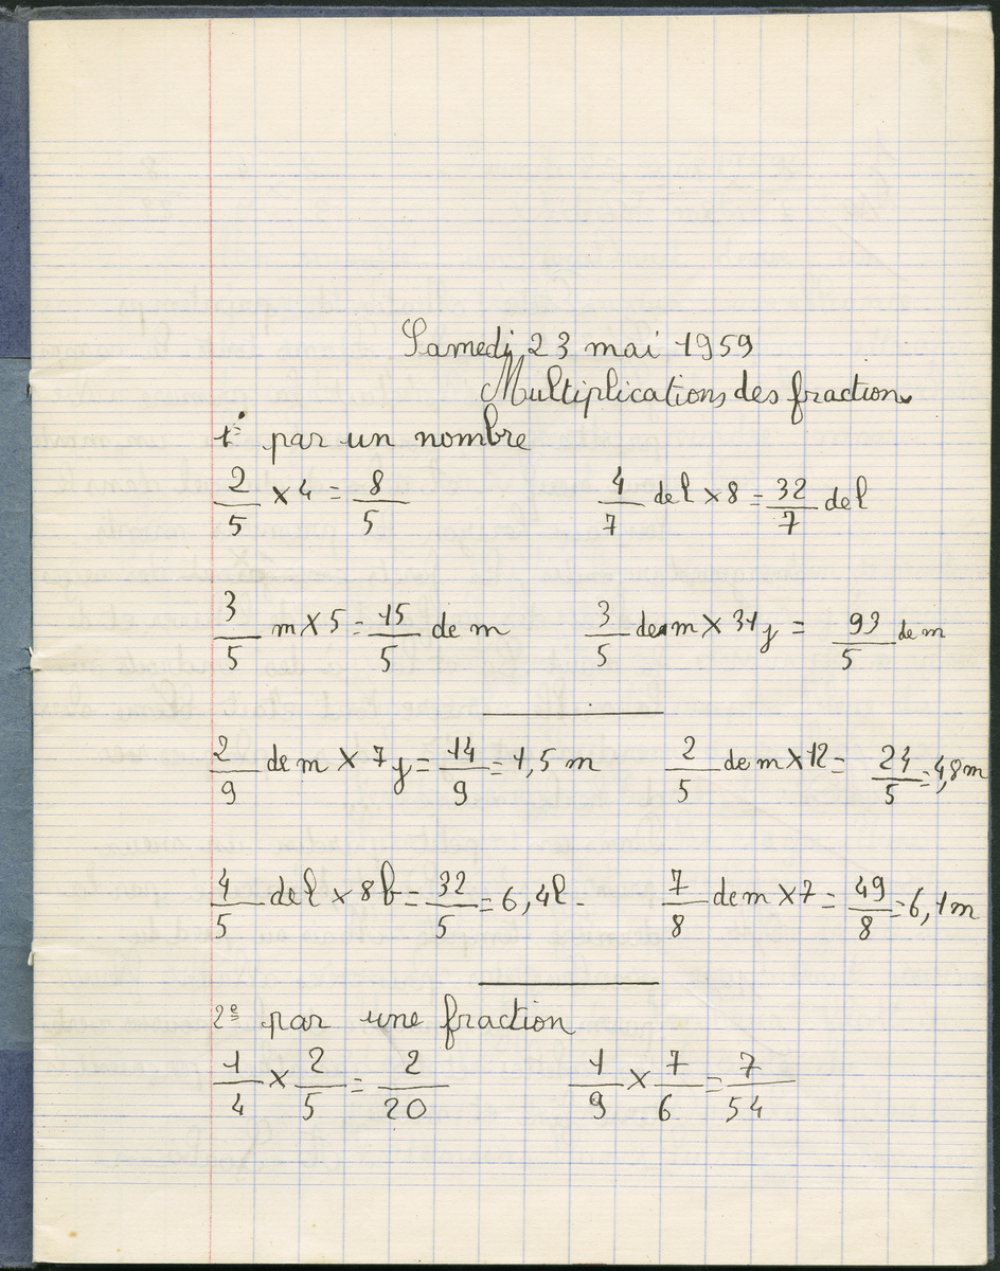 Samedi 23 mai 1959
Multiplications des fraction.
1° par un nombre
2/5 × 4 = 8/5    4/7 de l × 8 = 32/7 de l
3/5 m × 5 = 15/5 de m    3/5 de m × 31 j = 93/5 de m
2/9 de m × 7 j = 14/9 = 1,5 m    2/5 de m × 12 = 24/5 = 4,8 m
4/5 de l × 8 b = 32/5 = 6,4 l.    7/8 de m × 7 = 49/8 = 6,1 m
2e par une fraction
1/4 × 2/5 = 2/20    1/9 × 7/6 = 7/54